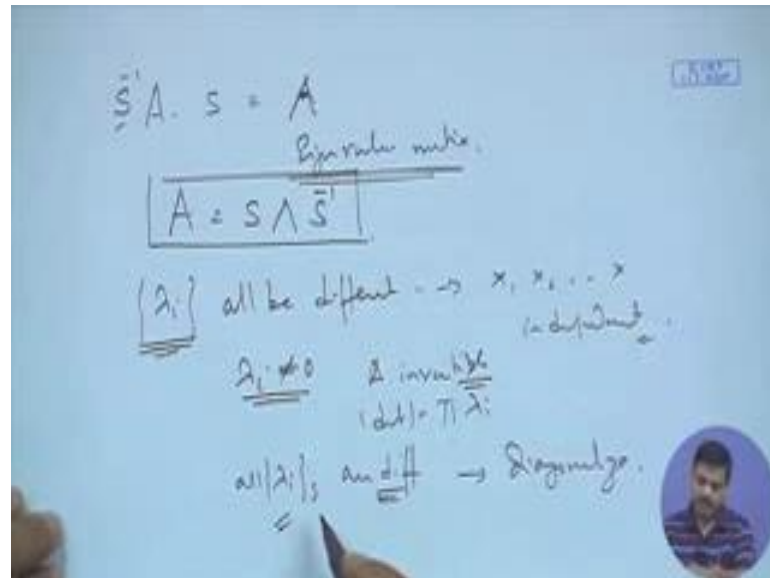 S⁻¹ A . S = Λ
Eigenvalue matrix.
A = S Λ S⁻¹
{λi} all be different → x₁ x₂ .. x
independent.
λi ≠ 0 A invertible
|det| = Π λi
all {λi}s are diff → Diagonalize.